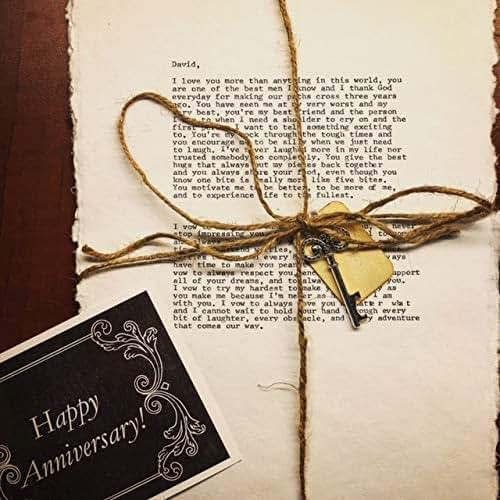 David,
I love you more than anything in this world, you
are one of the best men I know and I thank God
everyday for making our paths cross three years
ago. You have seen me at my very worst and my
very best, you're my best friend and the person
I to when I need a shoulder to cry on and the
first per I want to tell something exciting
to, You're my rock through the tough times and
you encourage me to be silly when we just need
to laugh, I've never laughed more in my life nor
trusted somebody completely. You give the best
hugs that always put my pieces back together
and you always share your food, even though you
know one bite is really more like five bites.
You motivate me to be better, to be more of me,
and to experience life to the fullest.
I vow to never
stop impressing you
have time to make you
vow to always respect you, support
all of your dreams, and to always
I vow to try my hardest to make you as
you make me because I'm never as I am
with you, I vow to always give you what
and I cannot wait to hold your hand through every
bit of laughter, every obstacle, and adventure
that comes our way.
Happy
Anniversary!